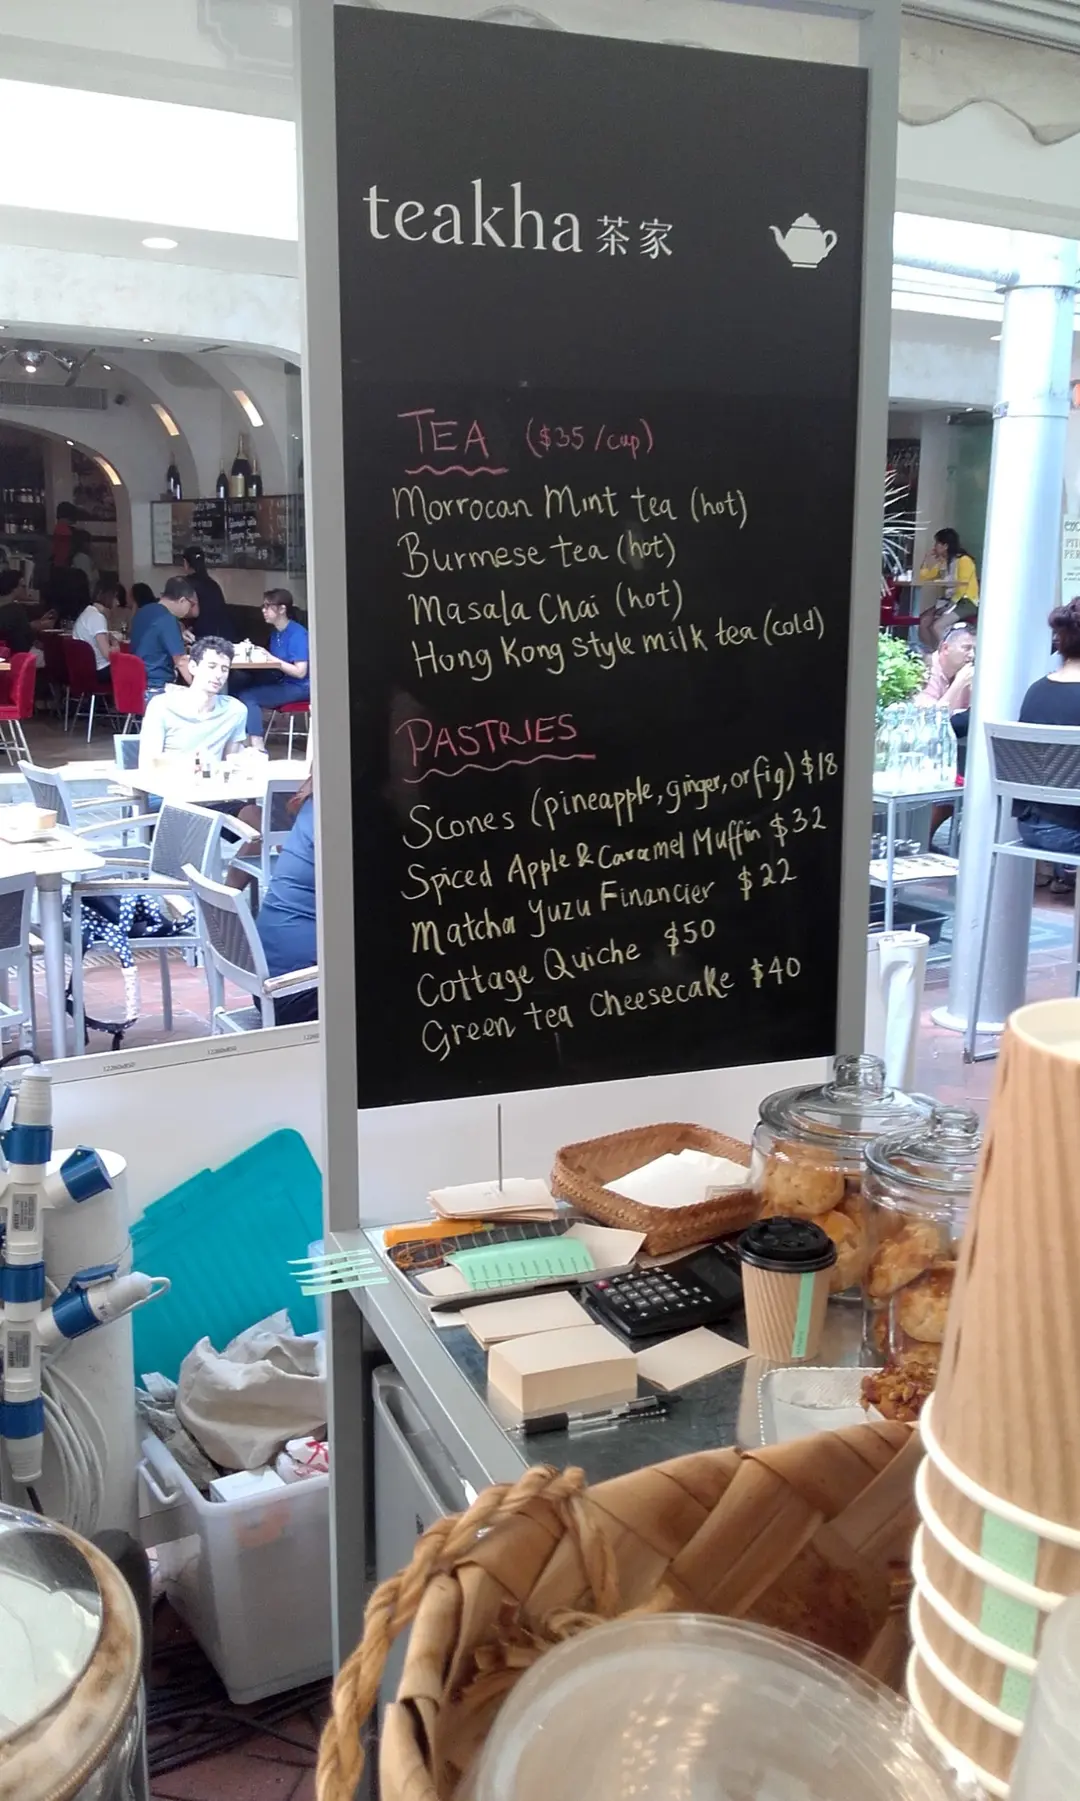 teakha 茶家
TEA ($35/cup)
Morrocan Mint tea (hot)
Burmese tea (hot)
Masala Chai (hot)
Hong Kong Style milk tea (cold)
PASTRIES
Scones (pineapple, ginger, or fig) $18
Spiced Apple & Caramel Muffin $32
Matcha Yuzu Financier $22
Cottage Quiche $50
Green tea Cheesecake $40